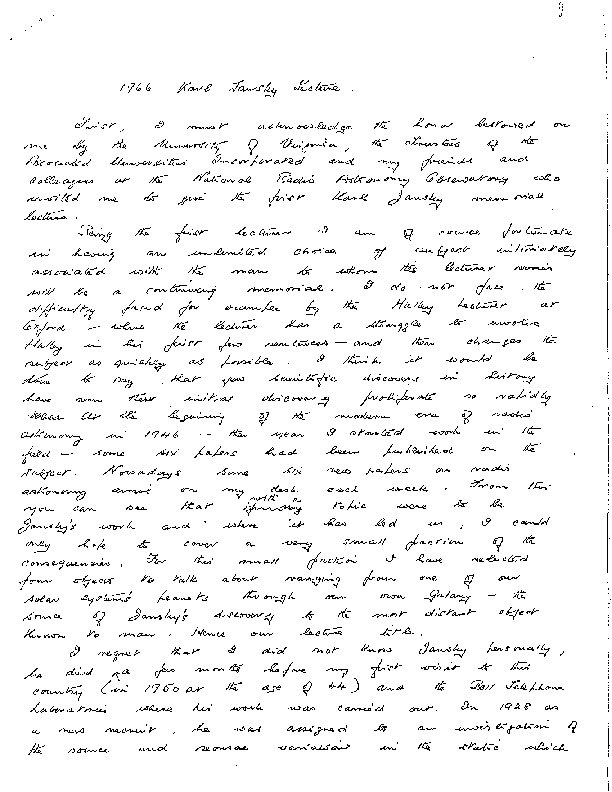 1966 Karl Jansky Lecture.
First, I must acknowledge the honor bestowed on
me by the University of Virginia, the trustees of the
Associated Universities Incorporated and my friends and
colleagues at the National Radio Astronomy Observatory who
invited me to give the first Karl Jansky memorial
lecture.
Being the first lecturer I am of course fortunate
in having an unlimited choice of subject intimately
associated with the man to whom the lecture series
will be a continuing memorial. I do not face the
difficulty faced for example by the Halley Lecturer at
Oxford - where the lecturer has a struggle to involve
Halley in his first few sentences - and then changes the
subject as quickly as possible. I think it would be
true to say that few scientific discoveries in history
have seen their initial discovery proliferate so rapidly
At the beginning of the modern era of radio
astronomy in 1946 - the year I started work in the
field - some six papers had been published on the
subject. Nowadays some six new papers on radio
astronomy arrive on my desk each week. From this
you can see that with a topic were to be
Jansky's work and where it has led us, I could
only hope to cover a very small fraction of the
consequences. For this small fraction I have selected
four objects to talk about ranging from one of our
solar system's planets through our own Galaxy - the
source of Jansky's discovery to the most distant object
known to man. Hence our lecture title.
I regret that I did not know Jansky personally,
he died a few months before my first visit to this
country (in 1950 at the age of 44) and the Bell Telephone
Laboratories where his work was carried out. In 1928 as
a new recruit, he was assigned to an investigation of
the source and variations in the static which